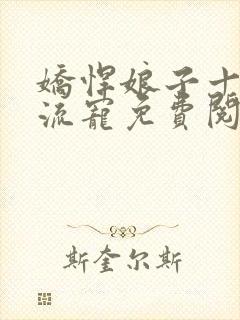 嬌悍娘子十
流寵免費閱
斯奎尔斯